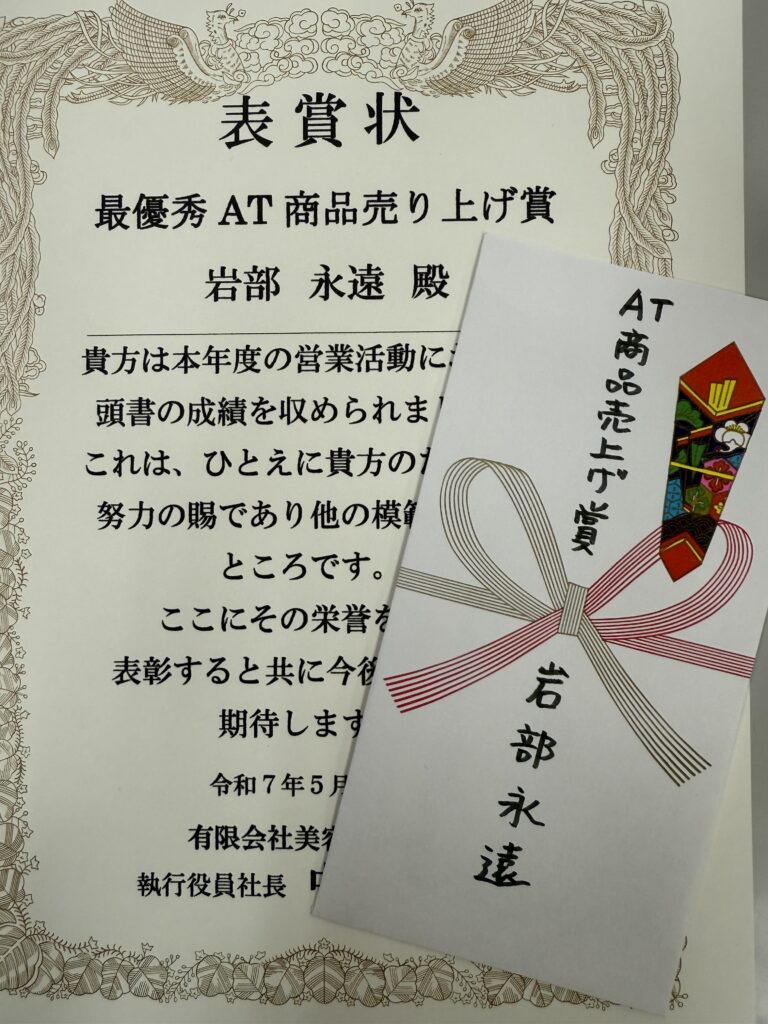 表賞状
最優秀AT商品売り上げ賞
岩部 永遠 殿
貴方は本年度の営業活動に
頭書の成績を収められま
これは、ひとえに貴方の
努力の賜であり他の模範
ところです。
ここにその栄誉を
表彰すると共に今後
期待します
令和7年5月
有限会社美容
執行役員社長
AT商品売上げ賞
岩部永遠